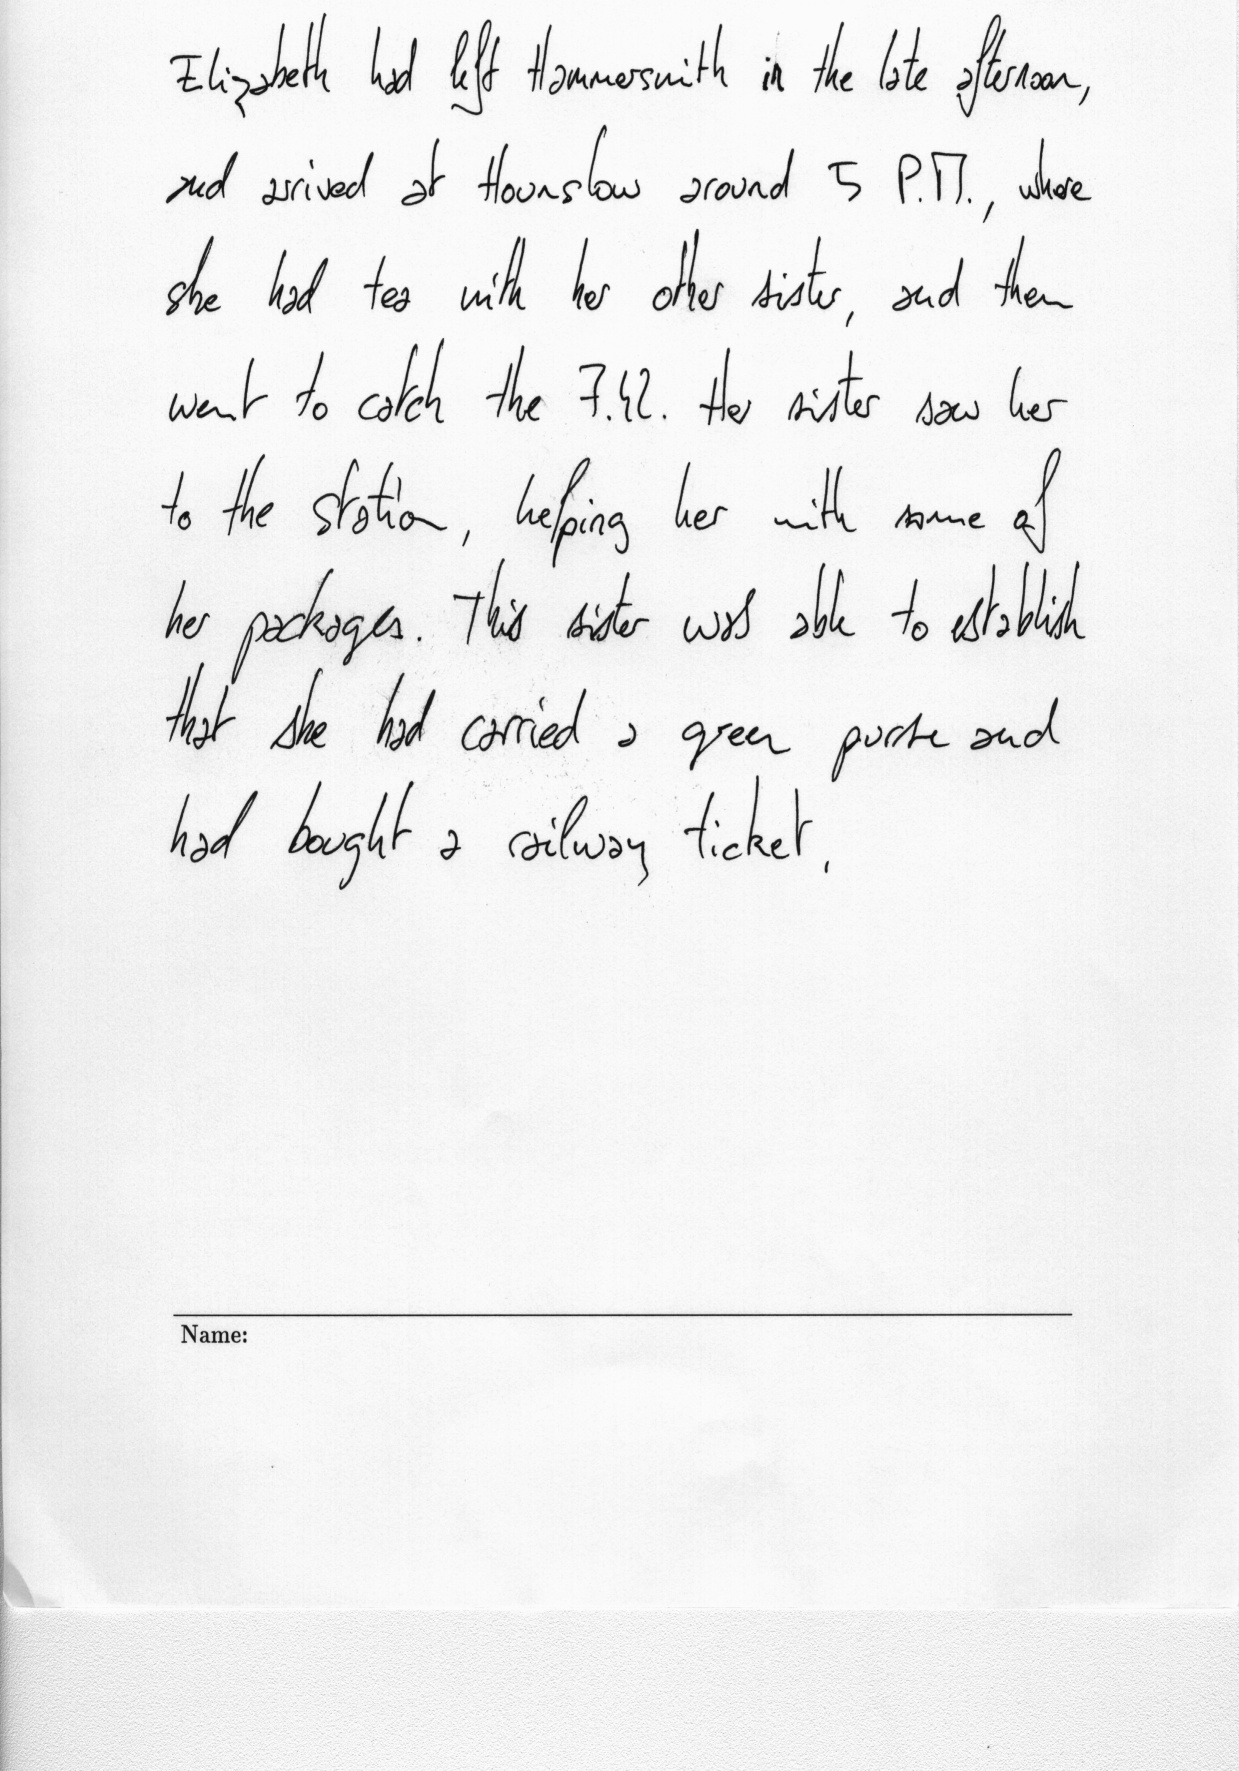 Elizabeth had left Hammersmith in the late afternoon,
and arrived at Hounslow around 5 P.M., where
she had tea with her other sister, and then
went to catch the 7.42. Her sister saw her
to the station, helping her with some of
her packages. This sister was able to establish
that she had carried a green purse and
had bought a railway ticket.
Name: